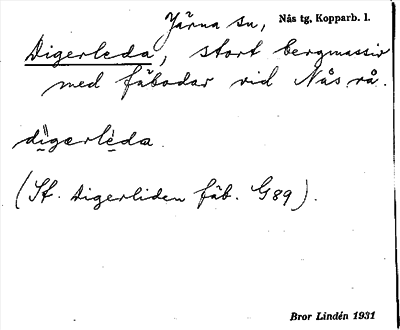 Järna sn, Nås tg, Kopparb. l.
Digerleda, stort bergmassiv
med fäbodar vid Nås rå.
digerlèda.
(Jf. Digerliden fäb. G89).
Bror Lindén 1931